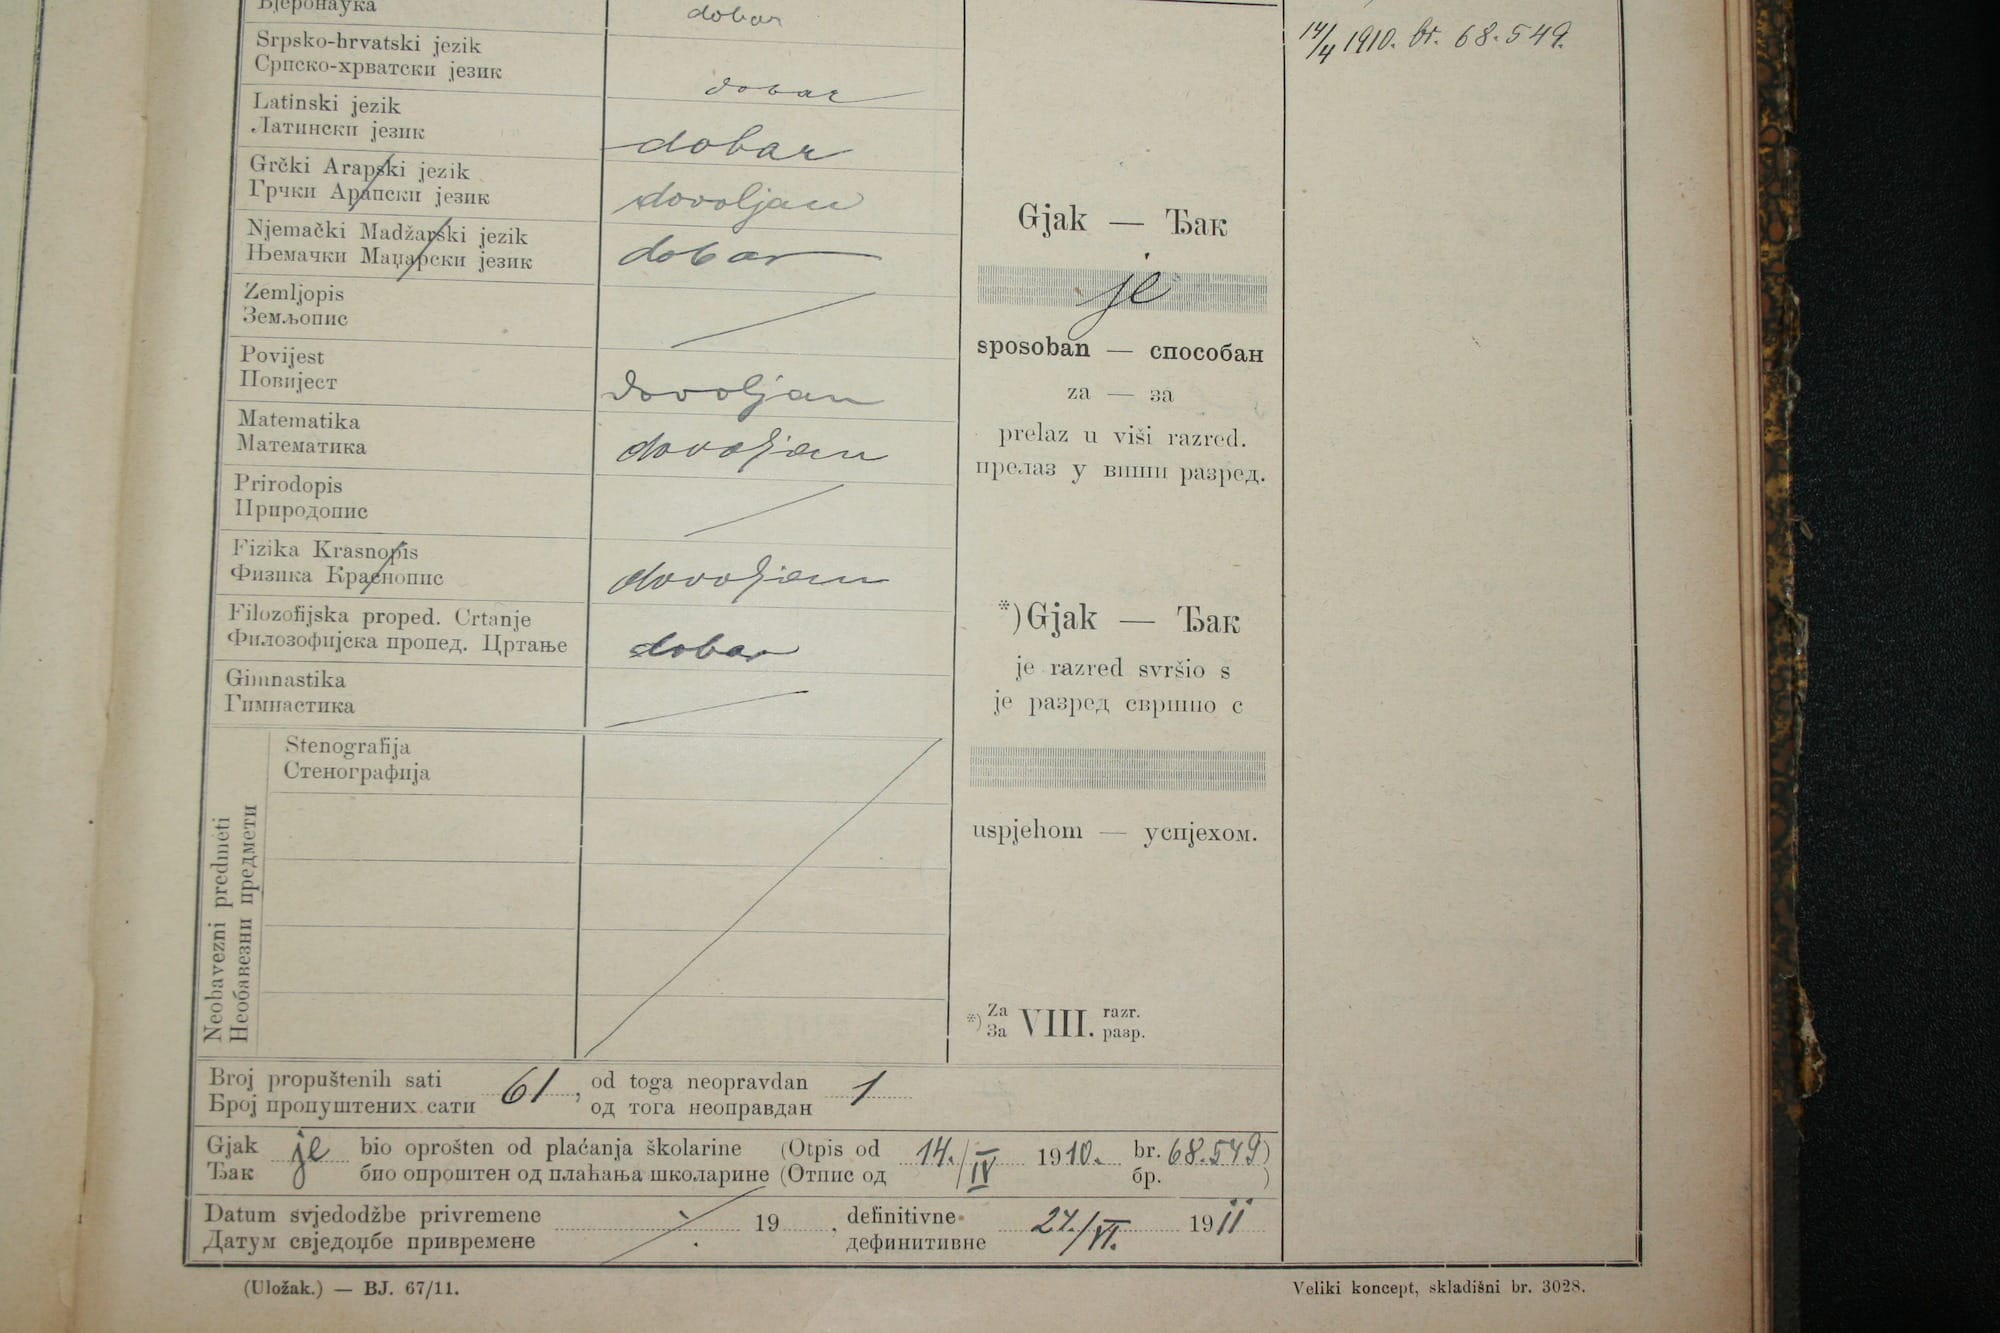 Вјеронаука dobar
Srpsko-hrvatski jezik
Српско-хрватски језик dobar
Latinski jezik
Латински језик dobar
Grčki Arapski jezik
Грчки Арапски језик dovoljan
Njemački Madžarski jezik
Њемачки Маџарски језик dobar
Zemljopis
Земљопис
Povijest
Повијест dovoljan
Matematika
Математика dovoljan
Prirodopis
Природопис
Fizika Krasnopis
Физика Краснопис dovoljan
Filozofijska proped. Crtanje
Филозофијска пропед. Цртање dobar
Gimnastika
Гимнастика
Neobavezni predmeti
Необавезни предмети
Stenografija
Стенографија
Gjak — Ђак
je
sposoban — способан
za — за
prelaz u viši razred.
прелаз у виши разред.
*) Gjak — Ђак
je razred svršio s
је разред свршио с
uspjehom — успјехом.
*) Za VIII. razr.
За разр.
14/4 1910. br. 68.549.
Broj propuštenih sati 61, od toga neopravdan 1
Број пропуштених сати од тога неоправдан
Gjak je bio oprošten od plaćanja školarine (Otpis od 14./IV 1910. br. 68.549)
Ђак био опроштен од плаћања школарине (Отпис од бр. )
Datum svjedodžbe privremene 19 , definitivne 27./VI. 1911
Датум свједоџбе привремене дефинитивне
(Uložak.) — BJ. 67/11.
Veliki koncept, skladišni br. 3028.